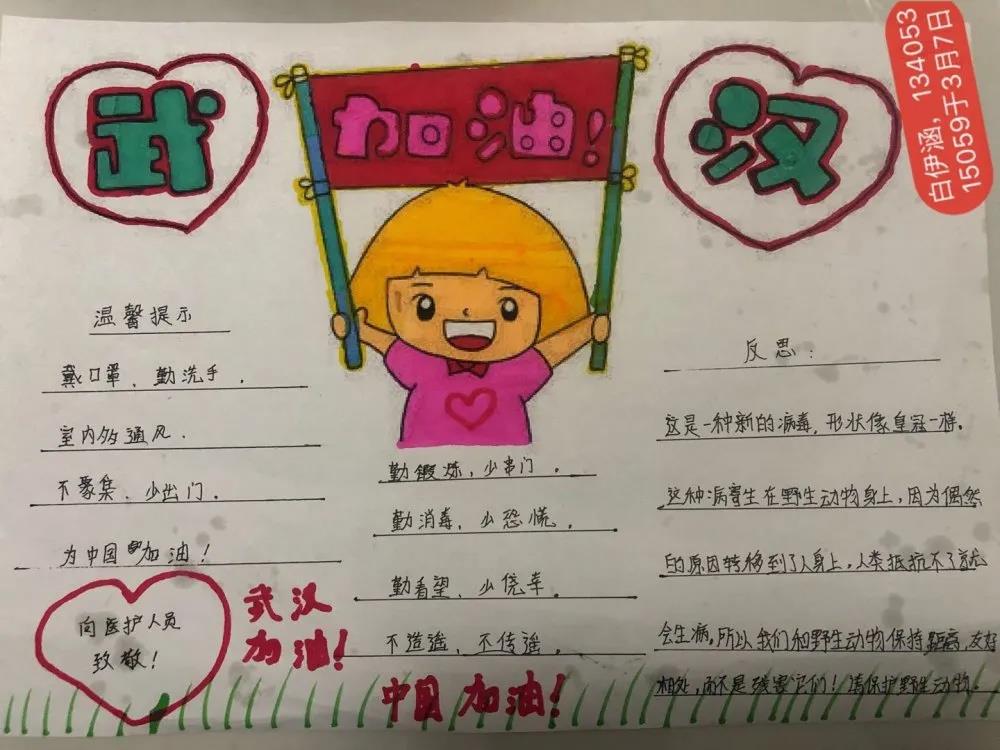 武
加油!
汉
白伊涵，134053
15059于3月7日
温馨提示
戴口罩、勤洗手.
室内多通风.
不聚集、少出门.
为中国加油!
勤锻炼,少串门.
勤消毒、少恐慌.
勤看望、少侥幸.
不造谣、不传谣.
反思:
这是一种新的病毒,形状像皇冠一样.
这种病寄生在野生动物身上,因为偶然
的原因转移到了人身上,人类抵抗不了就
会生病,所以我们和野生动物保持距离,友好
相处,而不是残害它们!请保护野生动物.
向医护人员
致敬!
武汉
加油!
中国加油!